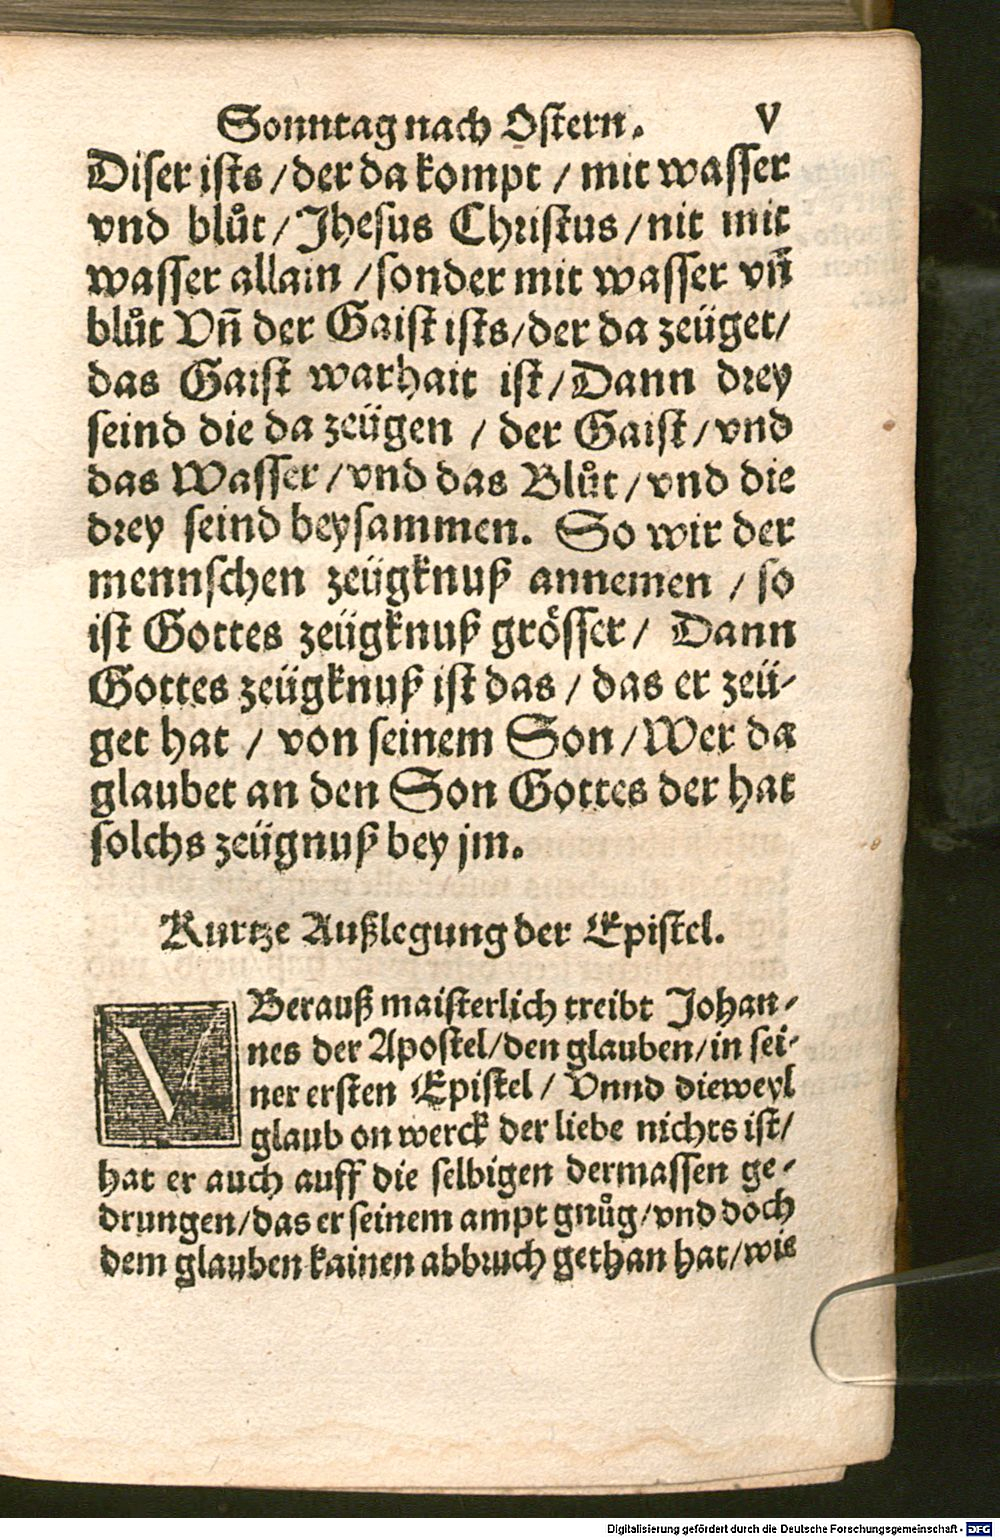 Sonntag nach Ostern. V
Diser ists / der da kompt / mit wasser
vnd blůt / Jhesus Christus / nit mit
wasser allain / sonder mit wasser vñ
blůt Vñ der Gaist ists / der da zeüget /
das Gaist warhait ist / Dann drey
seind die da zeügen / der Gaist / vnd
das Wasser / vnd das Blůt / vnd die
drey seind beysammen. So wir der
mennschen zeügknuß annemen / so
ist Gottes zeügknuß grösser / Dann
Gottes zeügknuß ist das / das er zeü-
get hat / von seinem Son / Wer da
glaubet an den Son Gottes der hat
solchs zeügnuß bey jm.
Kurtze Außlegung der Epistel.
VBerauß maisterlich treibt Johan-
nes der Apostel / den glauben / in sei-
ner ersten Epistel / Vnnd dieweyl
glaub on werck der liebe nichts ist /
hat er auch auff die selbigen dermassen ge-
drungen / das er seinem ampt gnůg / vnd doch
dem glauben kainen abbruch gethan hat / wie
Digitalisierung gefördert durch die Deutsche Forschungsgemeinschaft - DFG